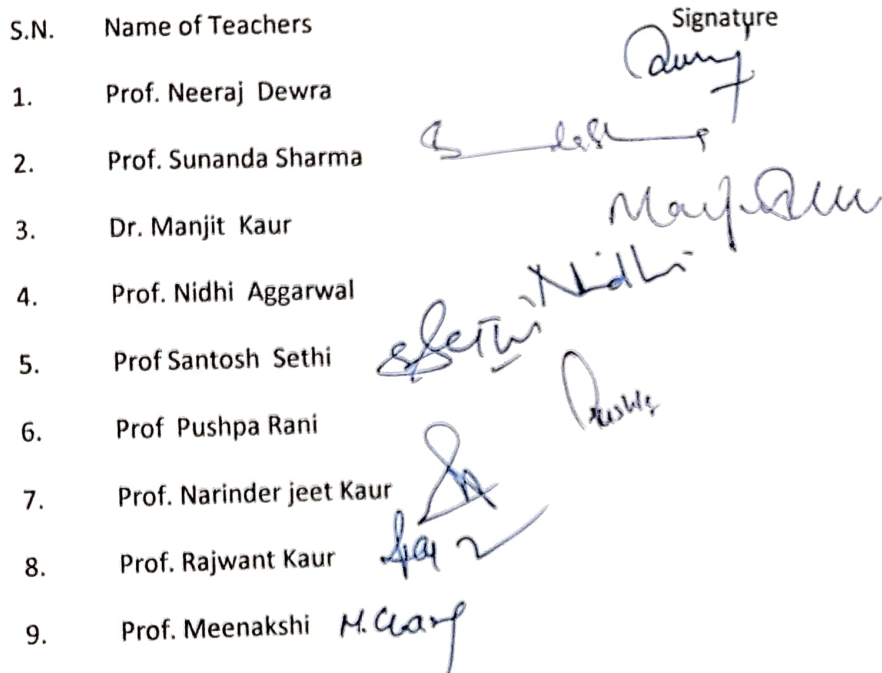 S.N. Name of Teachers Signature
1. Prof. Neeraj Dewra
2. Prof. Sunanda Sharma
3. Dr. Manjit Kaur
4. Prof. Nidhi Aggarwal Nidhi
5. Prof Santosh Sethi SSethi
6. Prof Pushpa Rani
7. Prof. Narinder jeet Kaur
8. Prof. Rajwant Kaur
9. Prof. Meenakshi